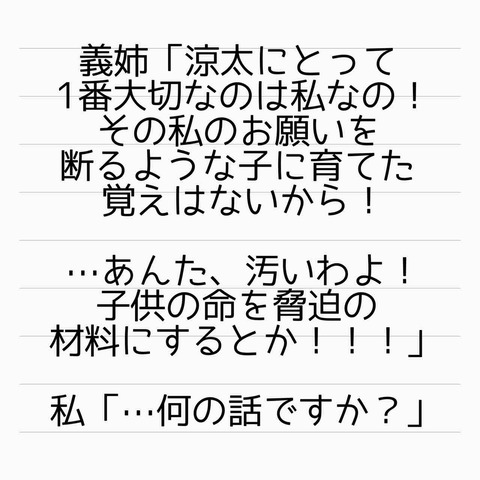 義姉「涼太にとって
1番大切なのは私なの！
その私のお願いを
断るような子に育てた
覚えはないから！
…あんた、汚いわよ！
子供の命を脅迫の
材料にするとか！！！」
私「…何の話ですか？」